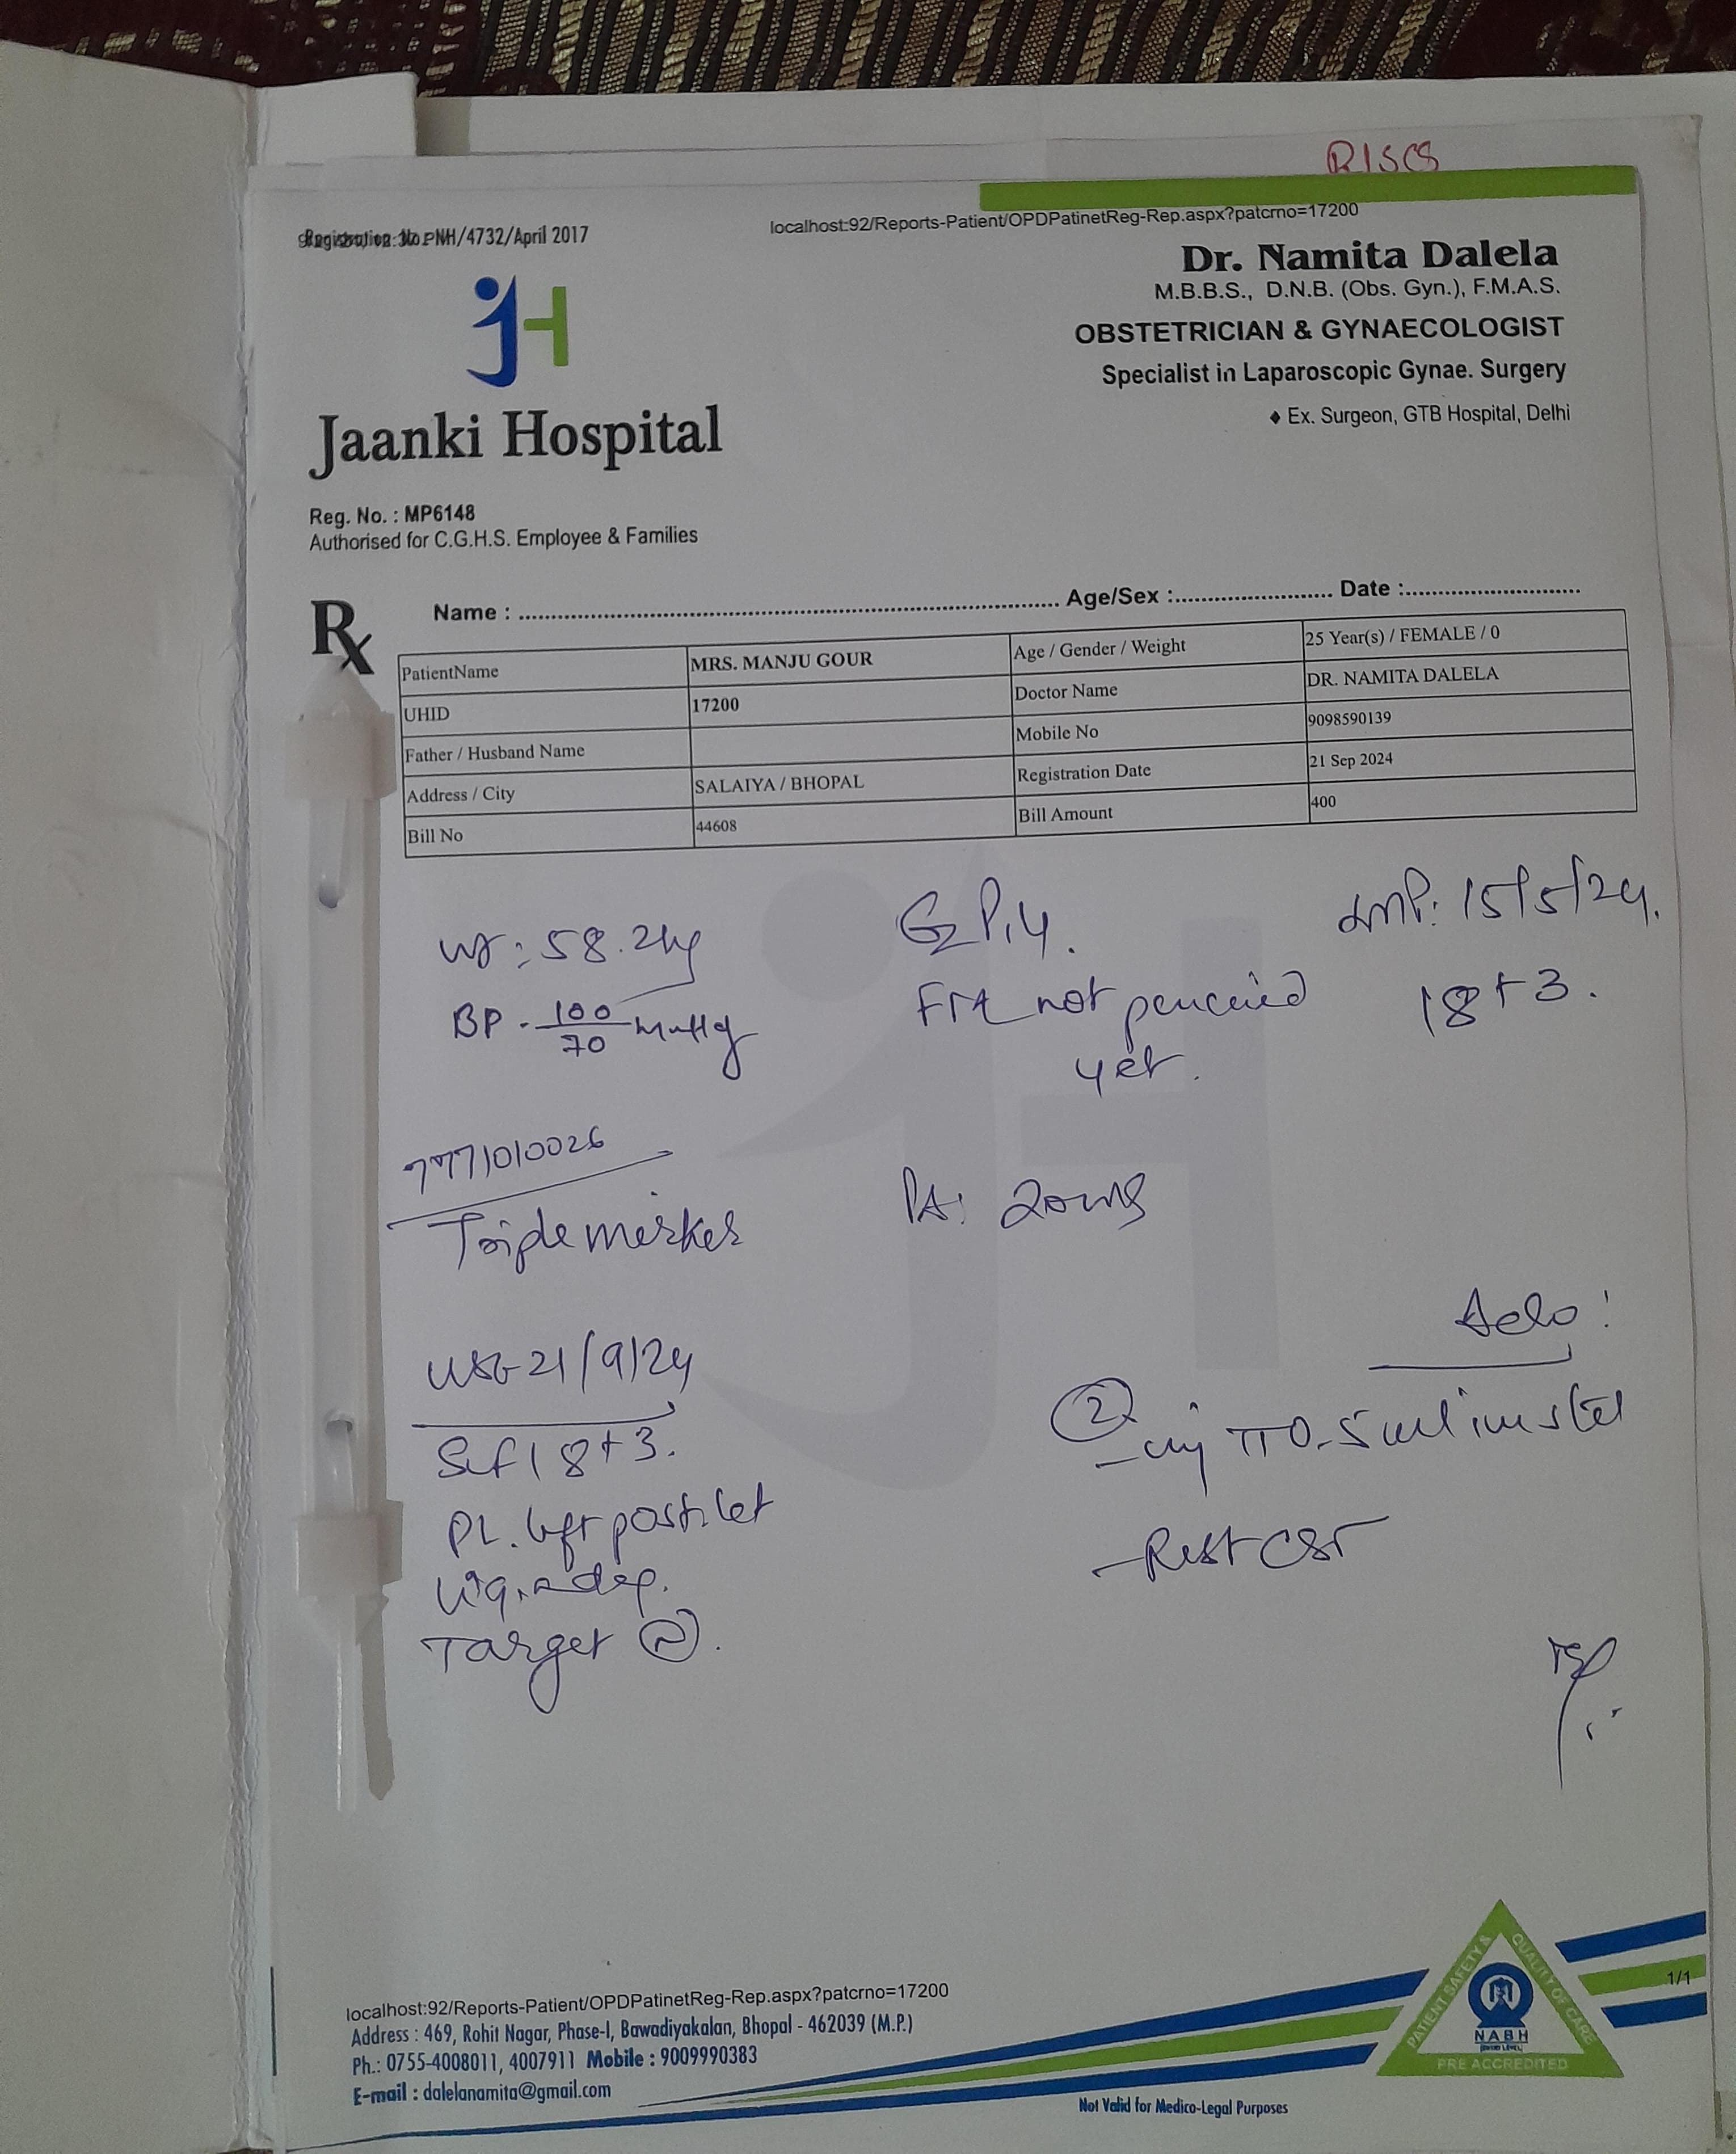 RISCS
Registration No. NH/4732/April 2017
localhost:92/Reports-Patient/OPDPatinetReg-Rep.aspx?patcrno=17200
JH
Jaanki Hospital
Reg. No. : MP6148
Authorised for C.G.H.S. Employee & Families
Dr. Namita Dalela
M.B.B.S., D.N.B. (Obs. Gyn.), F.M.A.S.
OBSTETRICIAN & GYNAECOLOGIST
Specialist in Laparoscopic Gynae. Surgery
♦ Ex. Surgeon, GTB Hospital, Delhi
Rx
Name : .......... Age/Sex :.......... Date :..........
PatientName MRS. MANJU GOUR Age / Gender / Weight 25 Year(s) / FEMALE / 0
UHID 17200 Doctor Name DR. NAMITA DALELA
Father / Husband Name Mobile No 9098590139
Address / City SALAIYA / BHOPAL Registration Date 21 Sep 2024
Bill No 44608 Bill Amount 400
wt: 58.2kg
BP - 100/70 mmHg
G2P1
not perceived
yet.
LMP: 15/5/24.
18+3.
7771010026
Triple marker
PA: 20wks
USG 21/9/24
Slf 18+3.
PL. left post. lat
liq. adeq.
Target N.
Adv:
2
- inj TT 0.5ml im stat
- Rest CST
localhost:92/Reports-Patient/OPDPatinetReg-Rep.aspx?patcrno=17200
Address : 469, Rohit Nagar, Phase-I, Bawadiyakalan, Bhopal - 462039 (M.P.)
Ph.: 0755-4008011, 4007911 Mobile : 9009990383
E-mail : dalelanamita@gmail.com
Not Valid for Medico-Legal Purposes
PATIENT SAFETY & QUALITY OF CARE
NABH
PRE ACCREDITED
1/1